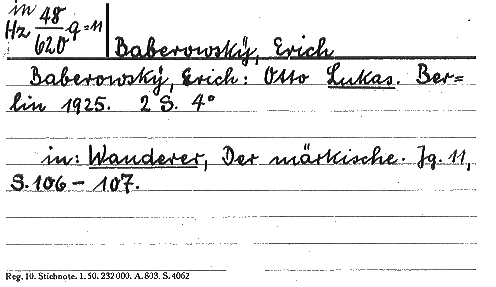 in
Hz 48/620 q=11
Baberowský, Erich
Baberowský, Erich: Otto Lukas. Ber=
lin 1925. 2 S. 4°
in: Wanderer, Der märkische. Jg. 11,
S. 106 - 107.
Reg. 10. Stichnote. 1. 50. 232000. A. 803. S. 4062